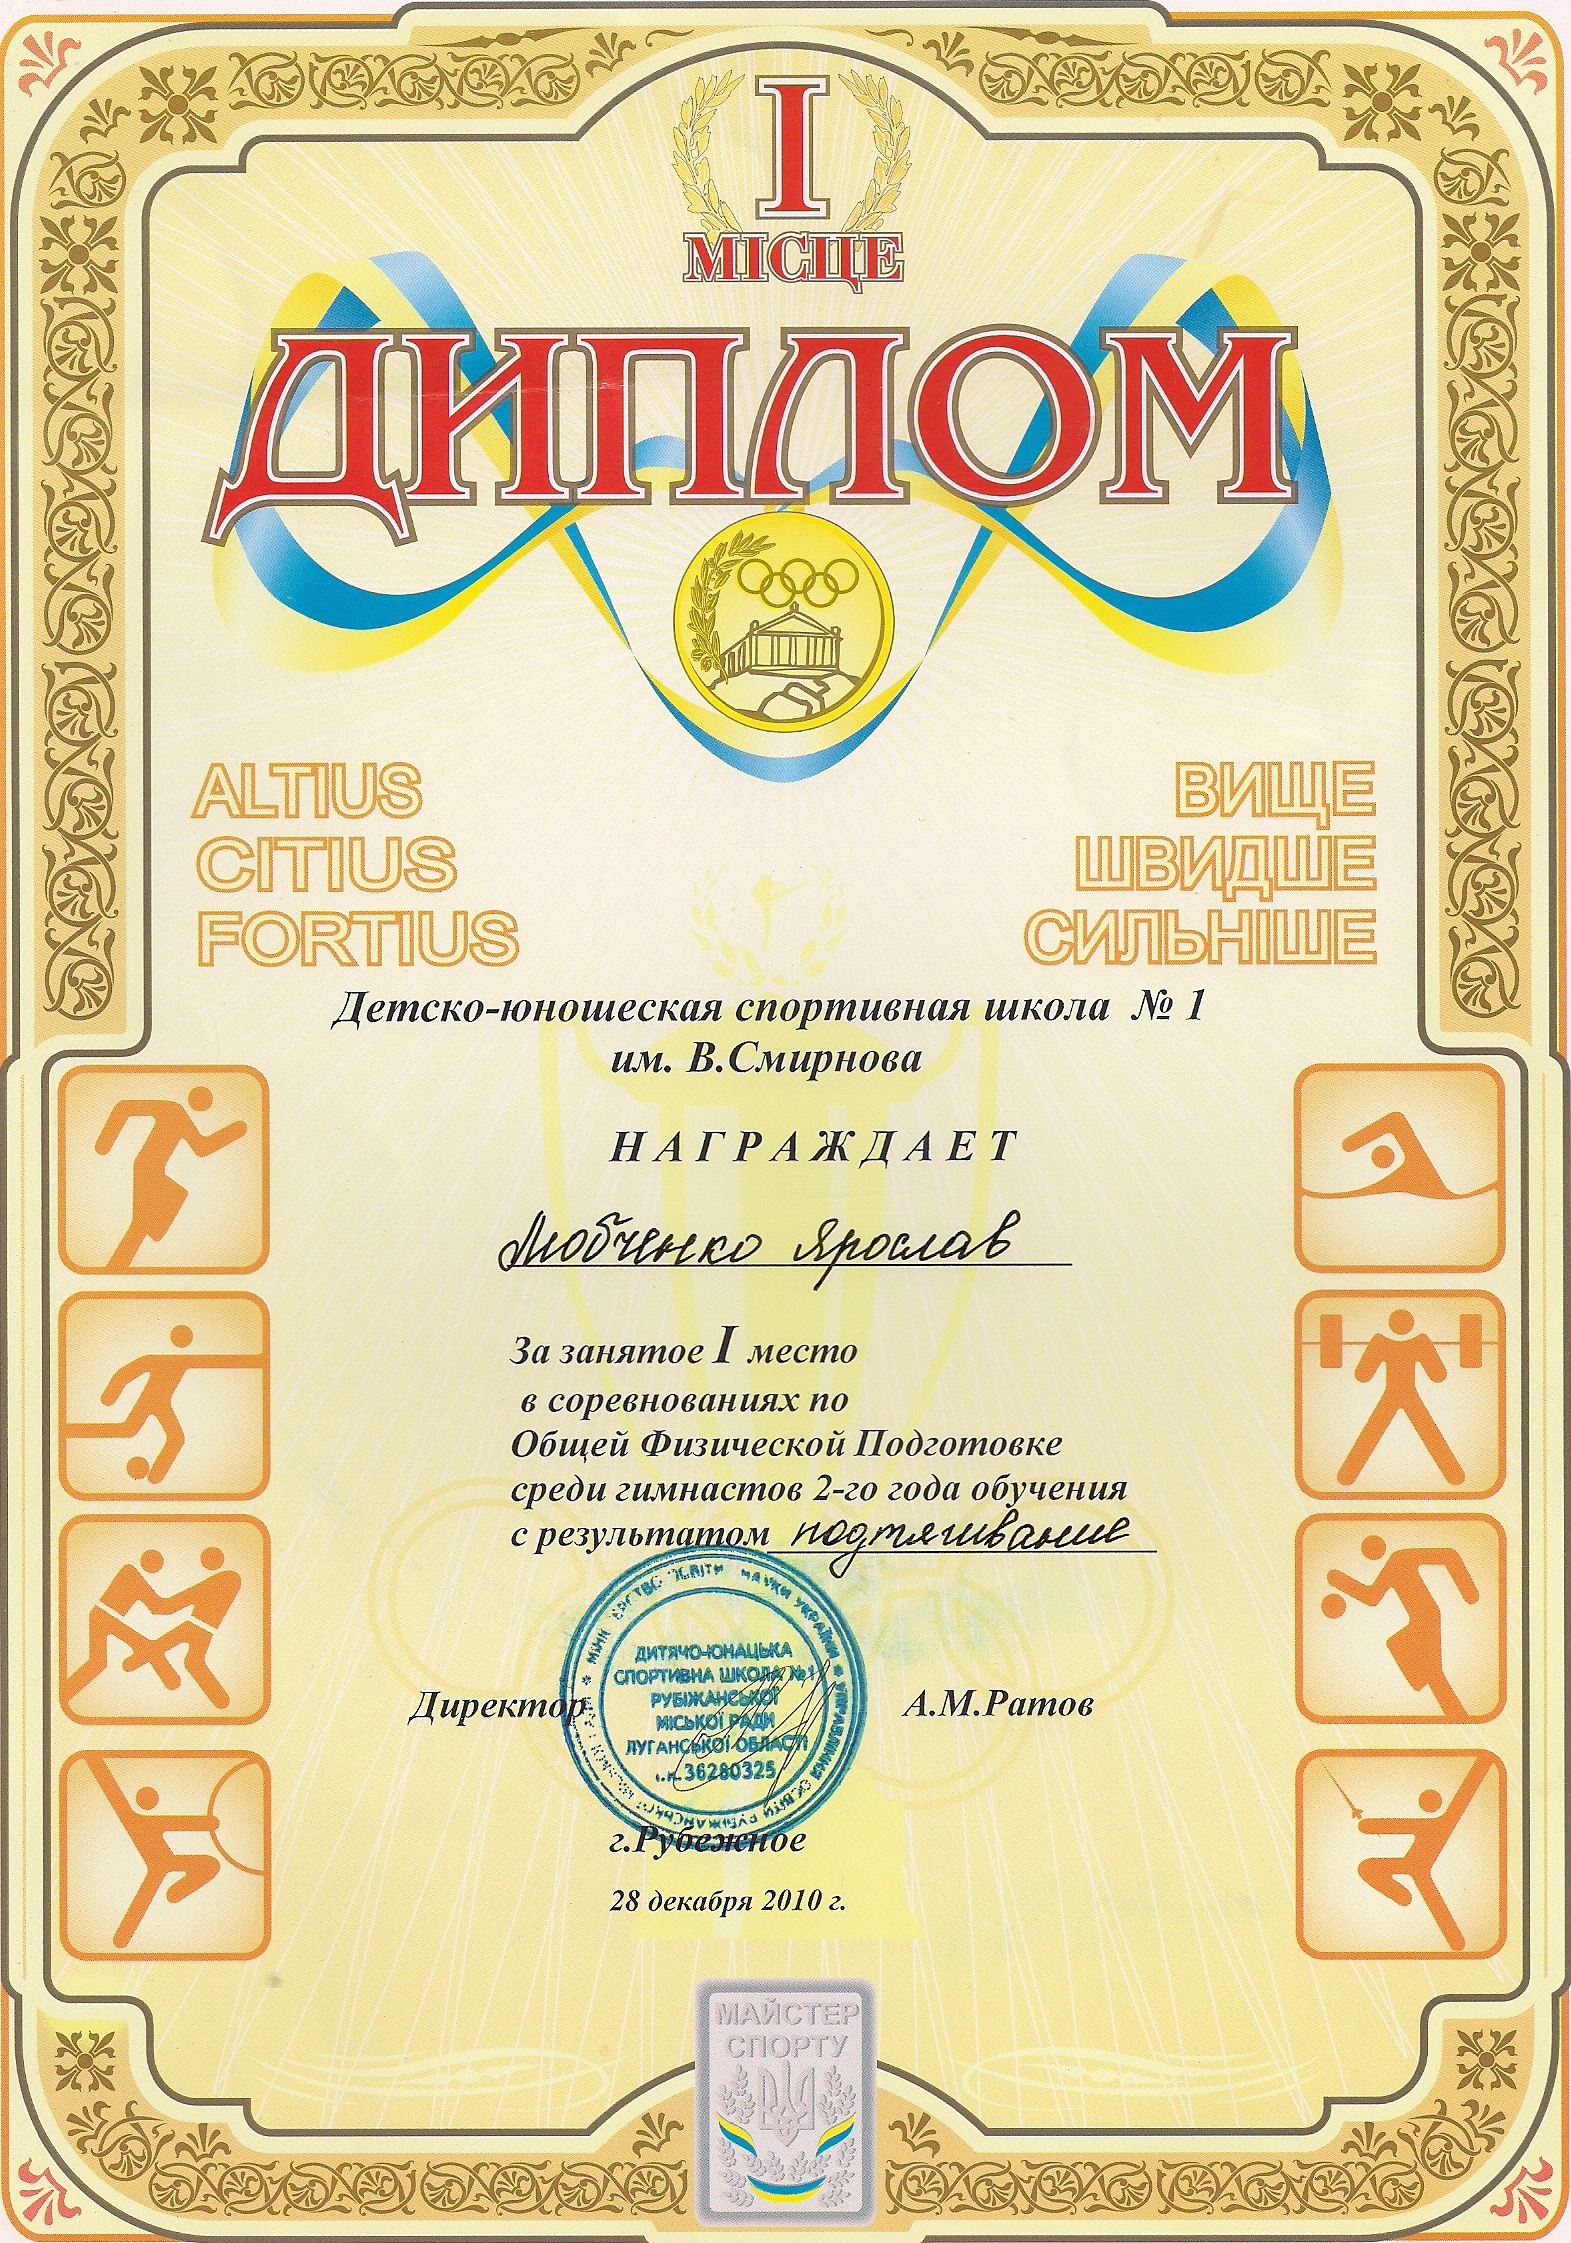 I
МІСЦЕ
ДИПЛОМ
ALTIUS
CITIUS
FORTIUS
ВИЩЕ
ШВИДШЕ
СИЛЬНІШЕ
Детско-юношеская спортивная школа № 1
им. В.Смирнова
НАГРАЖДАЕТ
Любченко Ярослав
За занятое I место
в соревнованиях по
Общей Физической Подготовке
среди гимнастов 2-го года обучения
с результатом подтягивание
ОСВІТИ НАУКИ УКРАЇНИ * УПРАВЛІННЯ ОСВІТИ РУБІЖАНСЬКОЇ
ДИТЯЧО-ЮНАЦЬКА
СПОРТИВНА ШКОЛА №1
РУБІЖАНСЬКОЇ
МІСЬКОЇ РАДИ
ЛУГАНСЬКОЇ ОБЛАСТІ
36280325
Директор А.М.Ратов
г.Рубежное
28 декабря 2010 г.
МАЙСТЕР
СПОРТУ